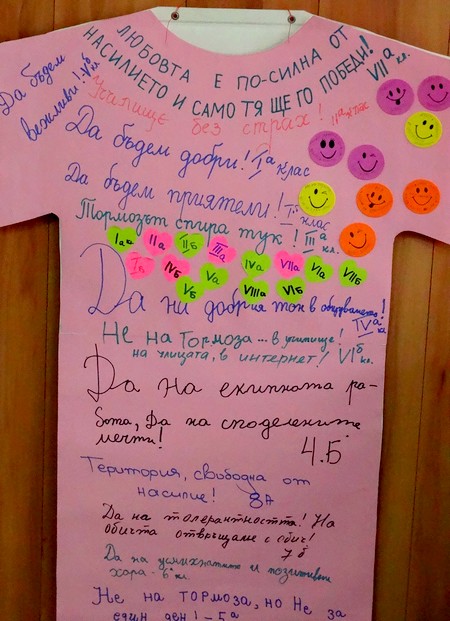 ЛЮБОВТА Е ПО-СИЛНА ОТ
НАСИЛИЕТО И САМО ТЯ ЩЕ ГО ПОБЕДИ!
VII а кл.
Да бъдем
вежливи! V б кл
Училище без страх! II а клас
Да бъдем добри! I а клас
Да бъдем приятели! I б клас
Тормозът спира тук! III а кл.
I а II а II б III а
I б IV б V а IV а VII а VI а VII б
V б VIII а VI б
Да на добрия тон в общуването!
IV а кл.
Не на тормоза... в училище!
на улицата, в интернет! VI б кл.
Да на екипната ра-
бота, Да на споделените
мечти!
4. Б
Територия, свободна от
насилие! 8А
Да на толерантността! На
обичта отвръщаме с обич!
7 б
Да на усмихнатите и позитивни
хора - 6 кл.
Не на тормоза, но Не за
един ден! - 5 а